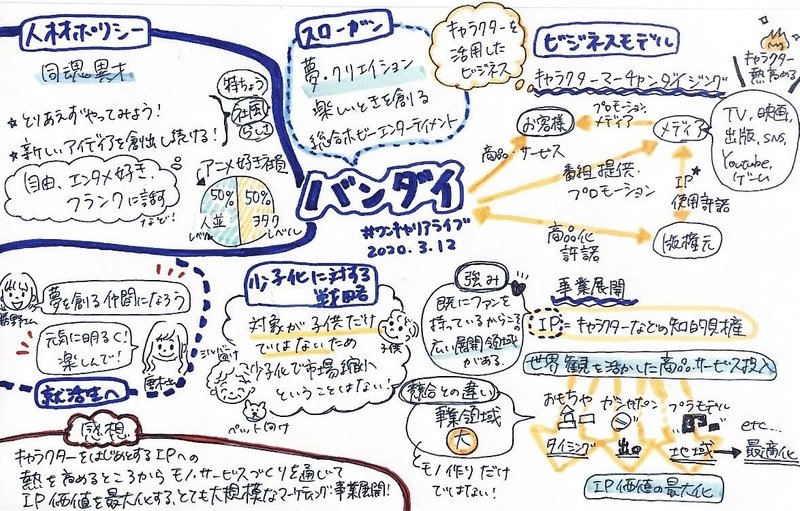 人材ポリシー
同魂異才
★とりあえずやってみよう!
★新しいアイデアを創出し続ける!
特ちょう
社風
らしさ
自由、エンタメ好き、
フランクに話す
など!
アニメ好き社員
50%
人並
レベル
50%
ヲタク
レベル
スローガン
夢・クリエイション
楽しいときを創る
総合ホビーエンターテイメント
キャラクターを
活用した
ビジネス
バンダイ
#ワンキャリアライブ
2020.3.12
ビジネスモデル
キャラクターマーチャンダイジング
お客様
プロモーション
メディア
メディア
商品・サービス
番組提供・
プロモーション
IP
使用許諾
商品化
許諾
版権元
キャラクター
熱高める
TV、映画、
出版、SNS、
Youtube、
ゲーム
夢を創る仲間になろう
元気に明るく!
楽しんで!
就活生へ
少子化に対する
戦略
対象が子供だけ
ではないため
少子化で市場縮小
ということはない!
子供
シルバー
向け
ペット向け
強み
既にファンを
持っているからこその
広い展開領域
がある。
競合との違い
事業領域
大
モノ作りだけ
ではない!
事業展開
IP=キャラクターなどの知的財産
世界観を活かした商品・サービス投入
おもちゃ
ガシャポン
プラモデル
etc...
タイミング
出口
地域
→最適化
IP価値の最大化
感想
キャラクターをはじめとするIPへの
熱を高めるところからモノ・サービスづくりを通じて
IP価値を最大化する、とても大規模なマーケティング・事業展開!